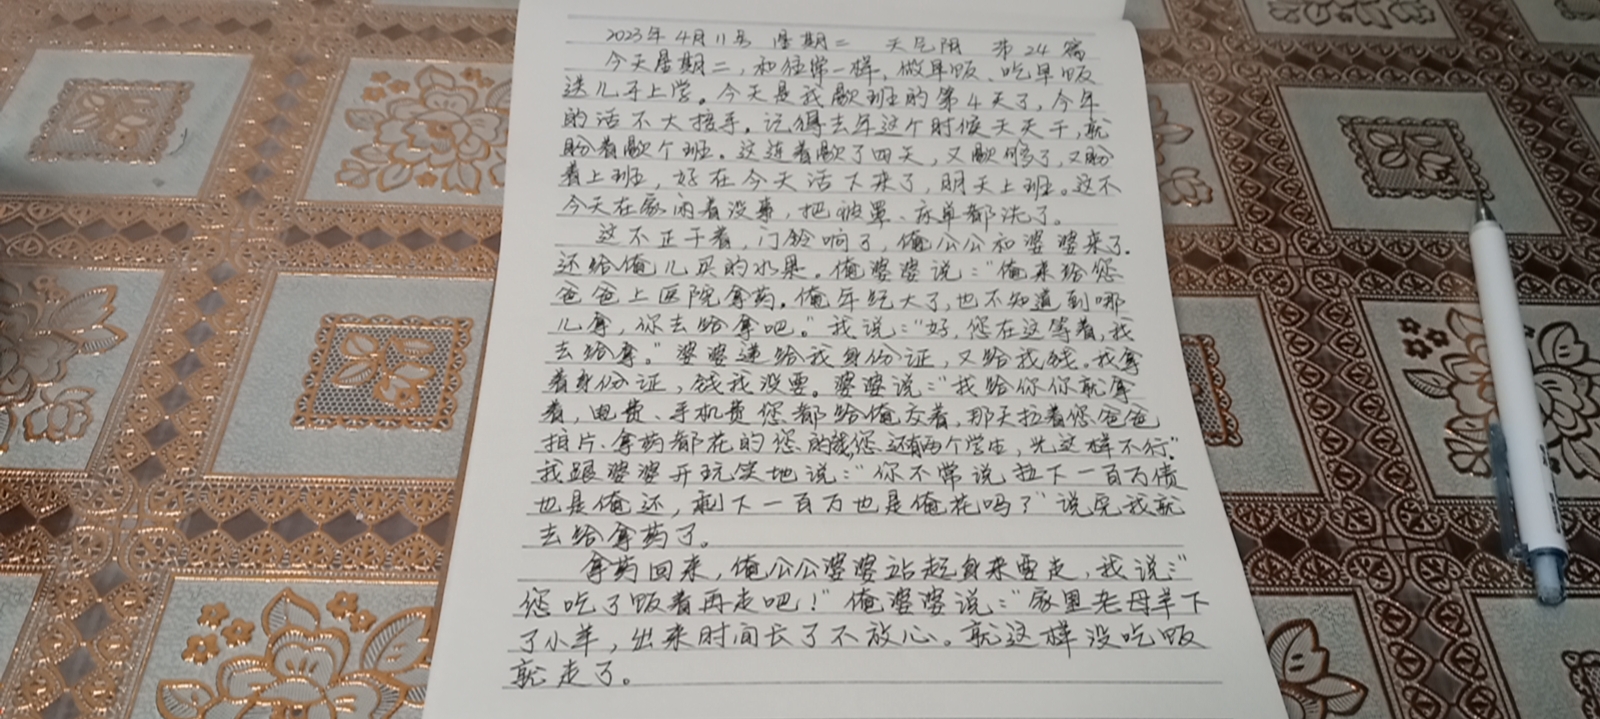 2023年4月11号 星期二 天气阴 第24篇
今天星期二，和往常一样，做早饭、吃早饭
送儿子上学。今天是我歇班的第4天了，今年
的活不大接手。记得去年这个时候天天干，就
盼着歇个班。这连着歇了四天，又歇够了，又盼
着上班，好在今天活下来了，明天上班。这不
今天在家闲着没事，把被罩、床单都洗了。
这不正干着，门铃响了，俺公公和婆婆来了。
还给俺儿买的水果。俺婆婆说："俺来给您
爸爸上医院拿药。俺年纪大了，也不知道到哪
儿拿，你去给拿吧。"我说："好，您在这等着，我
去给拿。"婆婆递给我身份证，又给我钱。我拿
着身份证，钱我没要。婆婆说："我给你你就拿
着，电费、手机费您都给俺交着，那天拉着您爸爸
拍片、拿药都花的您的钱，您还有两个学生，光这样不行"
我跟婆婆开玩笑地说："你不常说拉下一百万债
也是俺还，剩下一百万也是俺花吗？"说完我就
去给拿药了。
拿药回来，俺公公婆婆站起身来要走，我说："
您吃了饭着再走吧！"俺婆婆说："家里老母羊下
了小羊，出来时间长了不放心。就这样没吃饭
就走了。